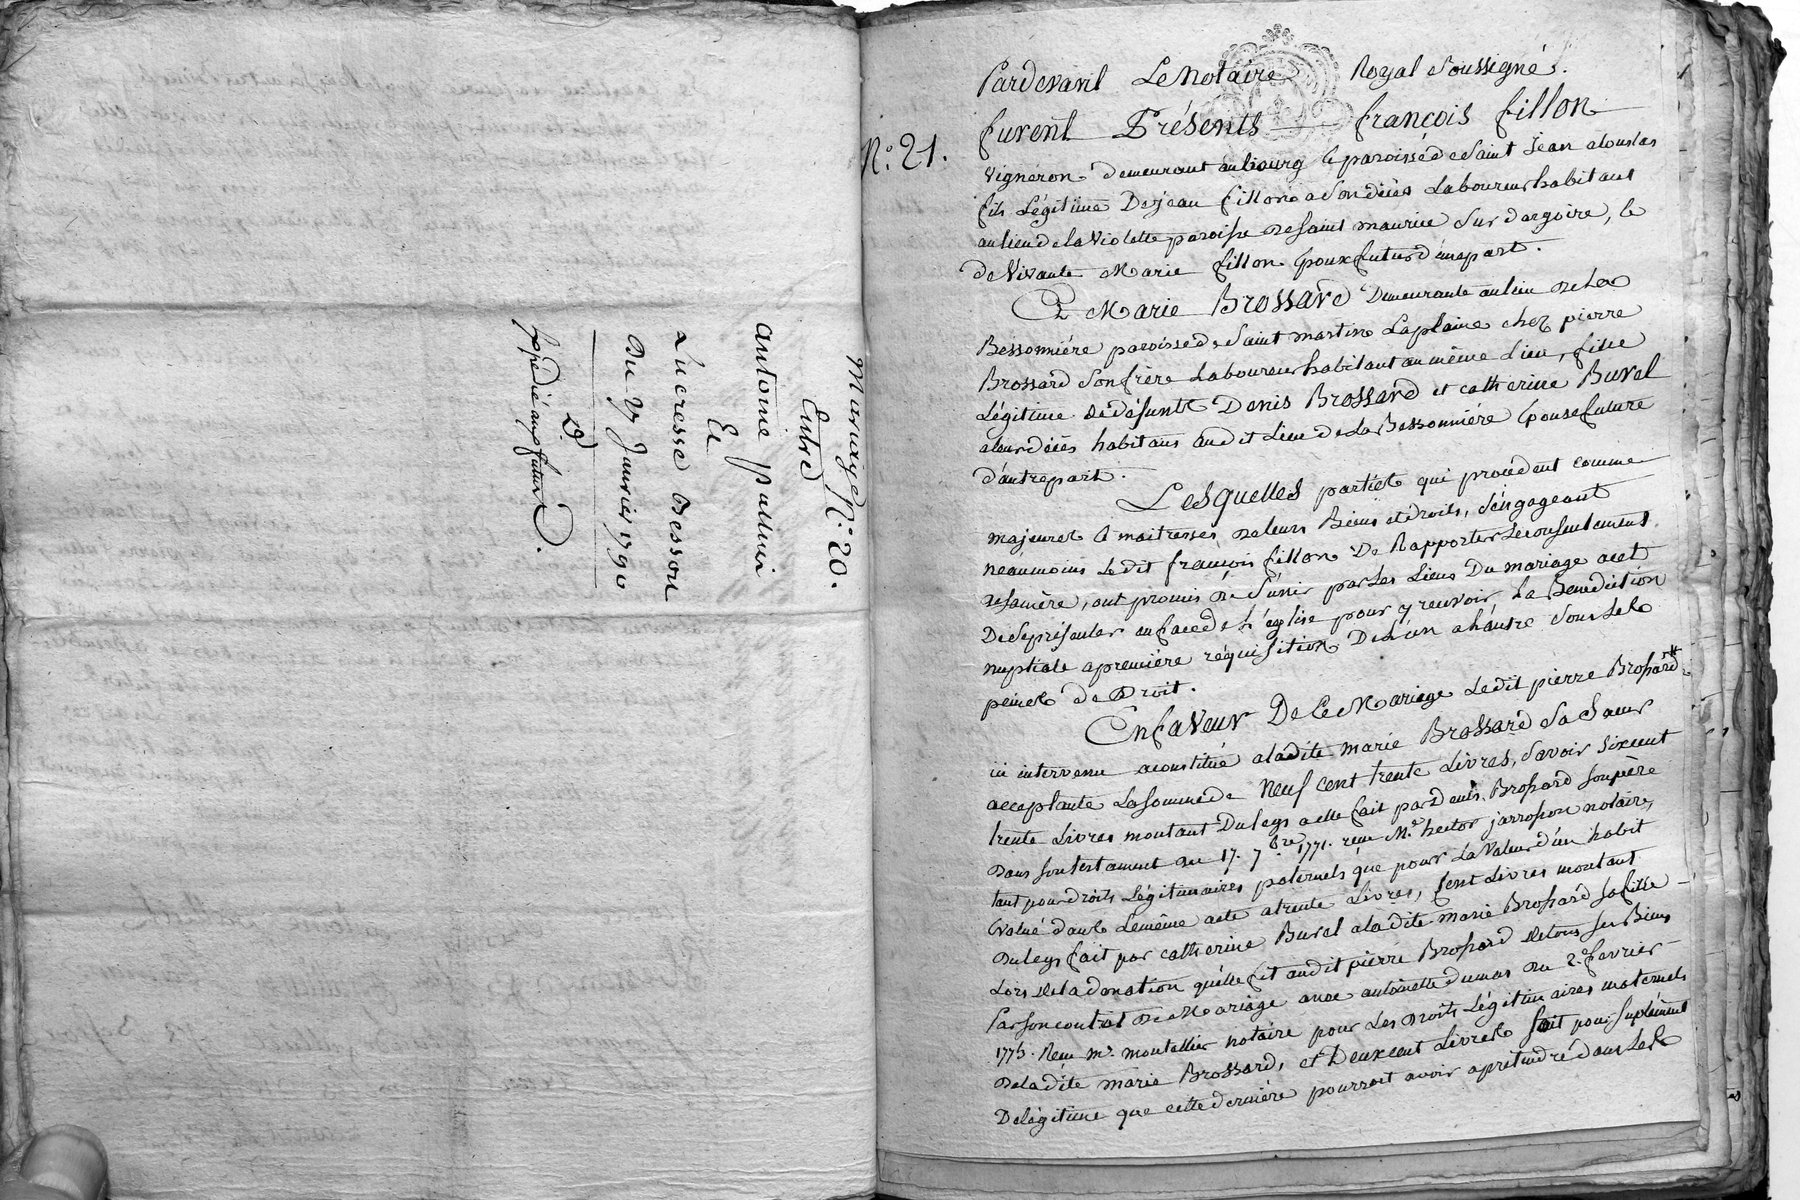 Mariage N.º 20.
Entre
antoine
Et
Lucresse Besson
Du Janvier 1790
Expédié aux futurs
N.º 21.
Pardevant Le Notaire Royal Soussigné.
furent Présents françois fillon
vigneron demeurant au bourg & paroisse de Saint Jean
fils Légitime De jean fillon Laboureur habitant
au lieu de la Violette paroisse de Saint maurice Sur dargoire, &
de Vivante Marie fillon Epoux futur d'une part.
Et Marie Brossard Demeurante au lieu de La
Bessonniére paroisse de Saint martin La plaine chez pierre
Brossard Son frère Laboureur habitant au même Lieu, fille
Légitime de défunts Denis Brossard et catherine Buvel
habitans audit Lieu de La Bessonniére Epouse future
d'autre part.
Lesquelles parties qui procédent comme
majeures & maitresses de leurs Biens et droits, S'engageant
néaumoins Ledit françois fillon De Rapporter le consentement
de Sa mère, ont promis de S'unir par Les Liens Du mariage & et
De Se présenter en face de L'église pour y recevoir La Bénédiction
nuptiale a premiére réquisition De L'un a L'autre Sous Les
peines de Droit.
En faveur De Ce Mariage Ledit pierre Brossard
ici intervenu a constitué a ladite marie Brossard Sa Sœur
acceptante La Somme de Neuf cent trente Livres, Savoir Six cent
trente Livres montant Du legs a elle fait par Denis Brossard Son père
Dans Son testament du 17. 7bre 1771. reçu Me. hector jarrosson notaire,
tant pour droits Légitimaires paternels que pour La Valeur d'un habit
Evalué dans Le même acte a trente Livres, Cent Livres montant
Du legs fait par catherine Buvel a ladite marie Brossard Sa fille
Lors de la donation qu'elle fit audit pierre Brossard de tous Ses Biens
Par Son contrat de Mariage avec antoinette dumas du 2. fevrier
1775. Reçu me. montellier notaire pour Les droits Légitimaires maternels
De ladite marie Brossard, et Deux cent Livres Soit pour Suplément
De légitime que cette derniére pourroit avoir a prétendre dans Les